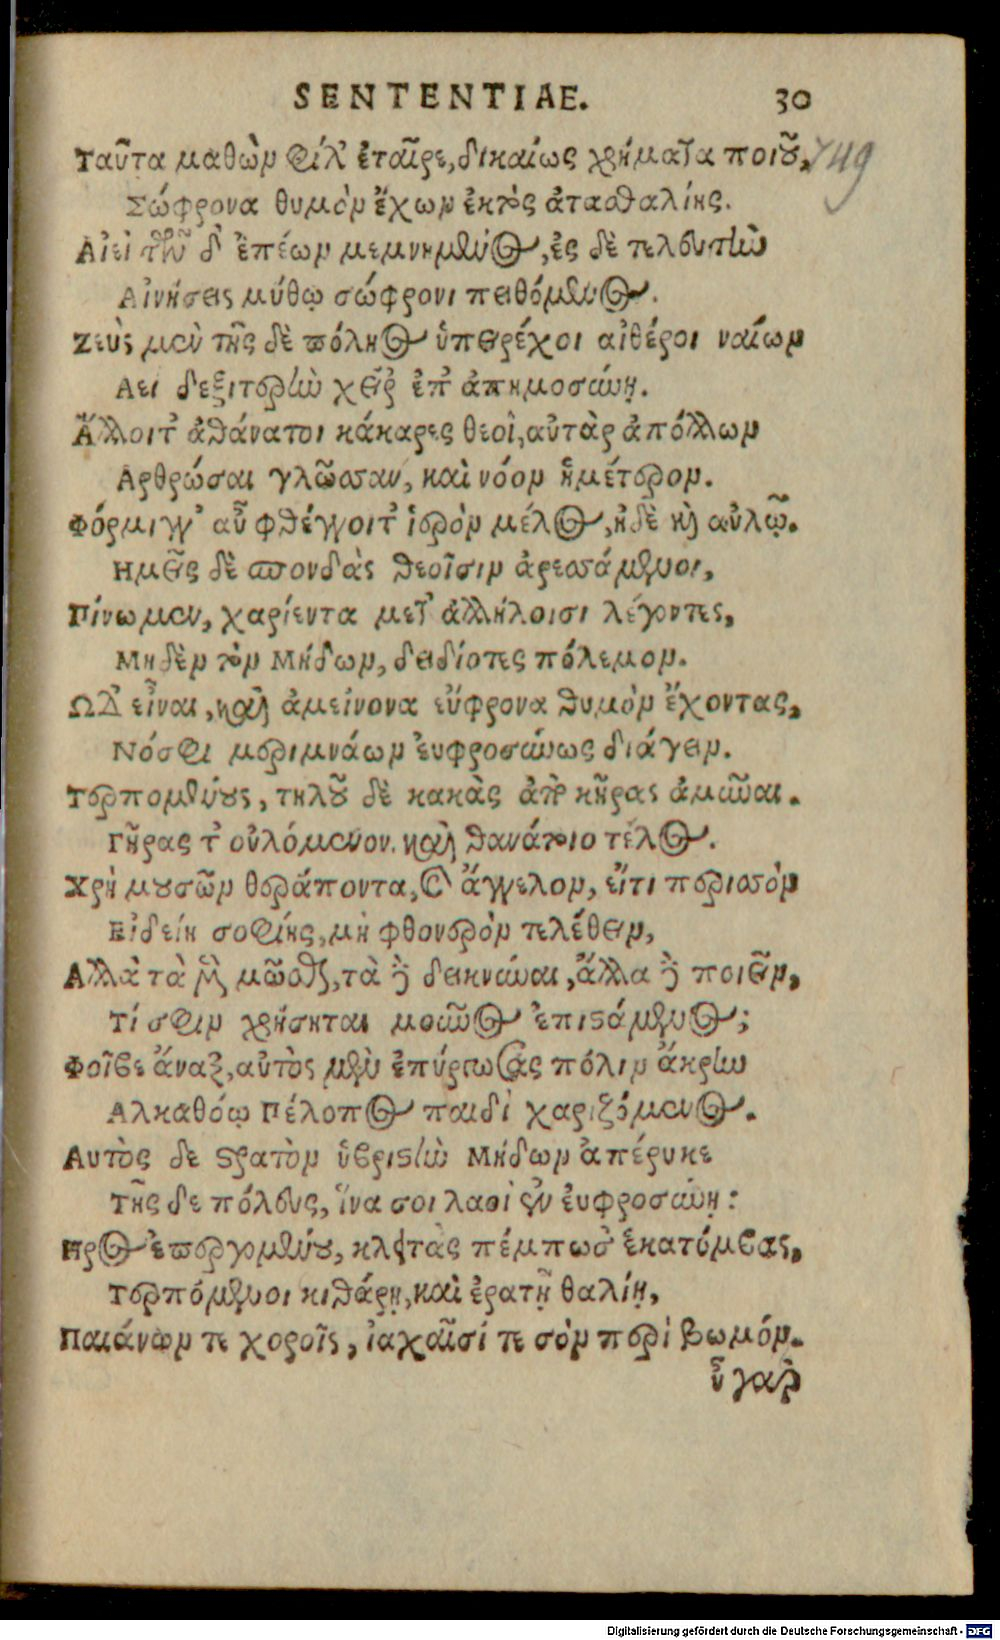 SENTENTIAE. 30
Ταῦτα μαθὼν φίλ' ἑταῖρε, δικαίως χρήματα ποιοῦ, 749
Σώφρονα θυμὸν ἔχων ἐκτὸς ἀτασθαλίης.
Αἰεὶ τῶν δ' ἐπέων μεμνημένος, ἐς δὲ τελευτὴν
Αἰνήσεις μύθῳ σώφρονι πειθόμενος.
Ζεὺς μὲν τῆς δὲ πόληος ὑπερέχοι αἰθέροι ναίων
Αει δεξιτερὴν χεῖρ' ἐπ' ἀπημοσύνῃ.
Ἄλλοιτ' ἀθάνατοι κάκαρες θεοὶ, αὐτὰρ ἀπόλλων
Αρθρώσαι γλῶσσαν, καὶ νόον ἡμέτερον.
Φόρμιγγ' αὖ φθέγγοιτ' ἱερὸν μέλος, ἠδὲ καὶ αὐλῷ.
Ημεῖς δὲ σπονδὰς θεοῖσιν ἀρεσσάμενοι,
Πίνωμεν, χαρίεντα μετ' ἀλλήλοισι λέγοντες,
Μηδὲν τὸν Μήδων, δειδίοτες πόλεμον.
Ωδ' εἶναι, καὶ ἀμείνονα εὔφρονα θυμὸν ἔχοντας,
Νόσφι μεριμνάων ἐυφροσύνως διάγειν.
Τερπομένους, τηλοῦ δὲ κακὰς ἀπὸ κῆρας ἀμῦναι.
Γῆρας τ' οὐλόμενον, καὶ θανάτοιο τέλος.
Χρὴ μουσῶν θεράποντα, καὶ ἄγγελον, εἴτι περισσὸν
Εἰδείη σοφίης, μὴ φθονερὸν τελέθειν,
Αλλὰ τὰ μὲν μῶσθαι, τὰ δὲ δεικνύναι, ἄλλα δὲ ποιεῖν,
Τί σφιν χρήσηται μοῦνος ἐπιστάμενος;
Φοῖβε ἄναξ, αὐτὸς μὲν ἐπύργωσας πόλιν ἄκρην
Αλκαθόῳ Πέλοπος παιδὶ χαριζόμενος.
Αυτὸς δε στρατὸν ὑβριστὴν Μήδων ἀπέρυκε
Τῆς δε πόλευς, ἵνα σοι λαοὶ ἐν ἐυφροσύνῃ:
Ηρος ἐπερχομένου, κλειτὰς πέμπωσ' ἑκατόμβας,
Τερπόμενοι κιθάρῃ, καὶ ἐρατῇ θαλίῃ,
Παιάνων τε χοροῖς, ἰαχαῖσί τε σὸν περὶ βωμόν.
ἦ γαρ
Digitalisierung gefördert durch die Deutsche Forschungsgemeinschaft - DFG